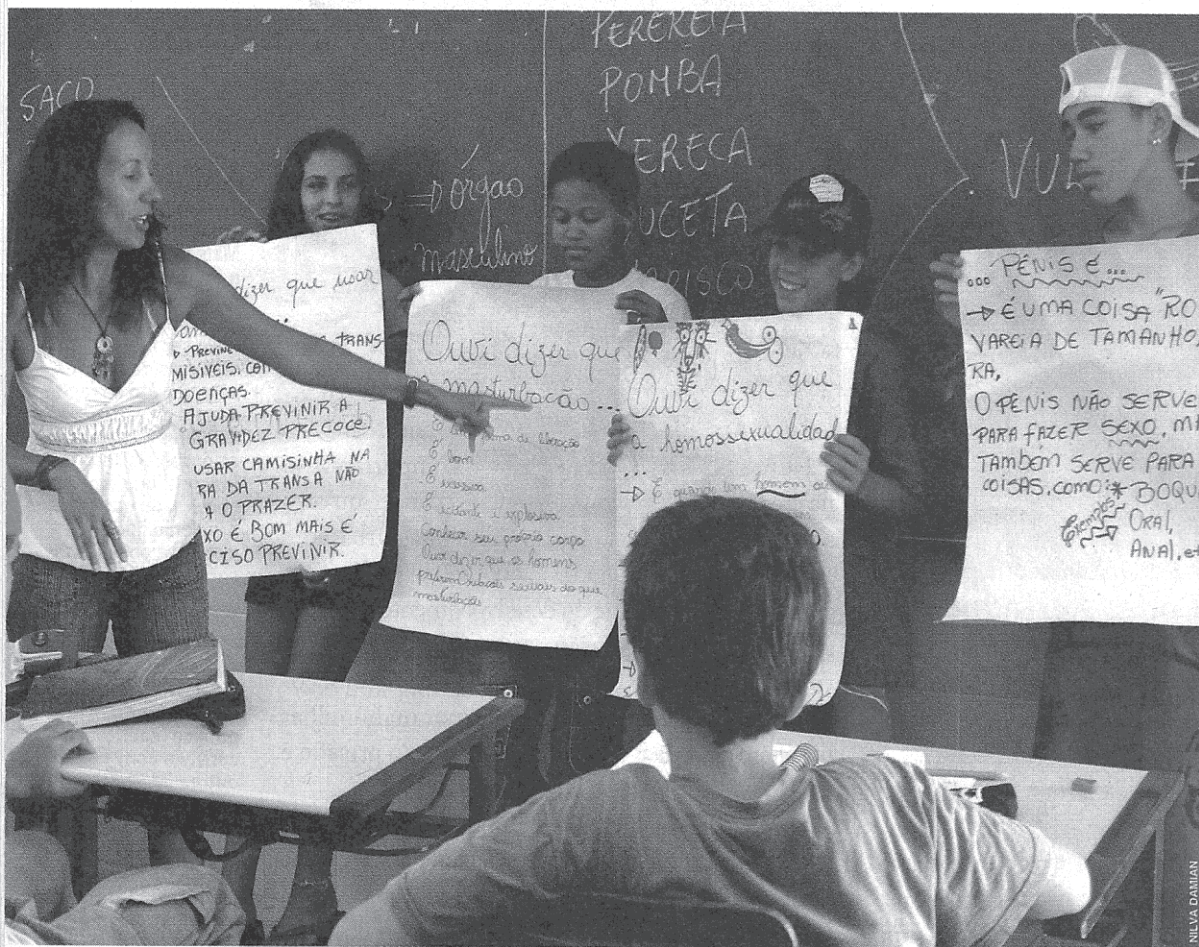 SACO
⇒ órgão
masculino
PERERECA
POMBA
XERECA
UCETA
RISCO
VUL
dizer que usar
TRANS-
MISÍVEIS.
DOENÇAS.
AJUDA PREVINIR A
GRAVIDEZ PRECOCE
USAR CAMISINHA NA
RA DA TRANSA NÃO
O PRAZER.
XO É BOM MAIS É
CISO PREVINIR.
Ouvi dizer que
masturbação...
É uma forma de liberação
É bom
É
É excitante e explosiva
Conhecer seu próprio corpo
Ouvi dizer que os homens
preferem relações sexuais do que
masturbação
Ouvi dizer que
a homossexualidad
...
→ É quando um homem
... PÊNIS É...
→ É UMA COISA "RO
VAREIA DE TAMANHO,
RA,
O PÊNIS NÃO SERVE
PARA FAZER SEXO. MA
TAMBEM SERVE PARA
COISAS. COMO: * BOQU
Exemplos
ORAL,
ANAL, et
NILVA DAMIAN